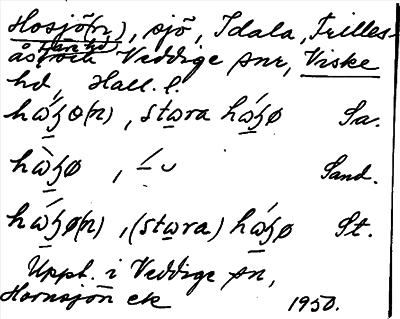 Hosjö(n), sjö, Idala, Frilles-
ås och Veddige snr, Viske
hd, Hall. l.
hώʒø(n), stωra hώʒø Sa.
hὼʒø, –́ ⌣ Sand.
hώʒø(n), (stωra) hώʒø St.
Uppt. i Veddige sn,
Hornsjön ek 1950.